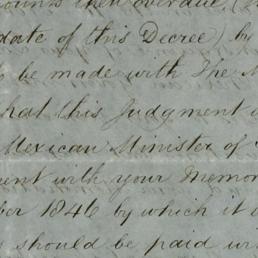 ounts then overdue, (
date of this Decree) by
be made with The M
hat this Judgment
Mexican Minister of
ent with your Memor
ber 1846 by which it
should be paid wi